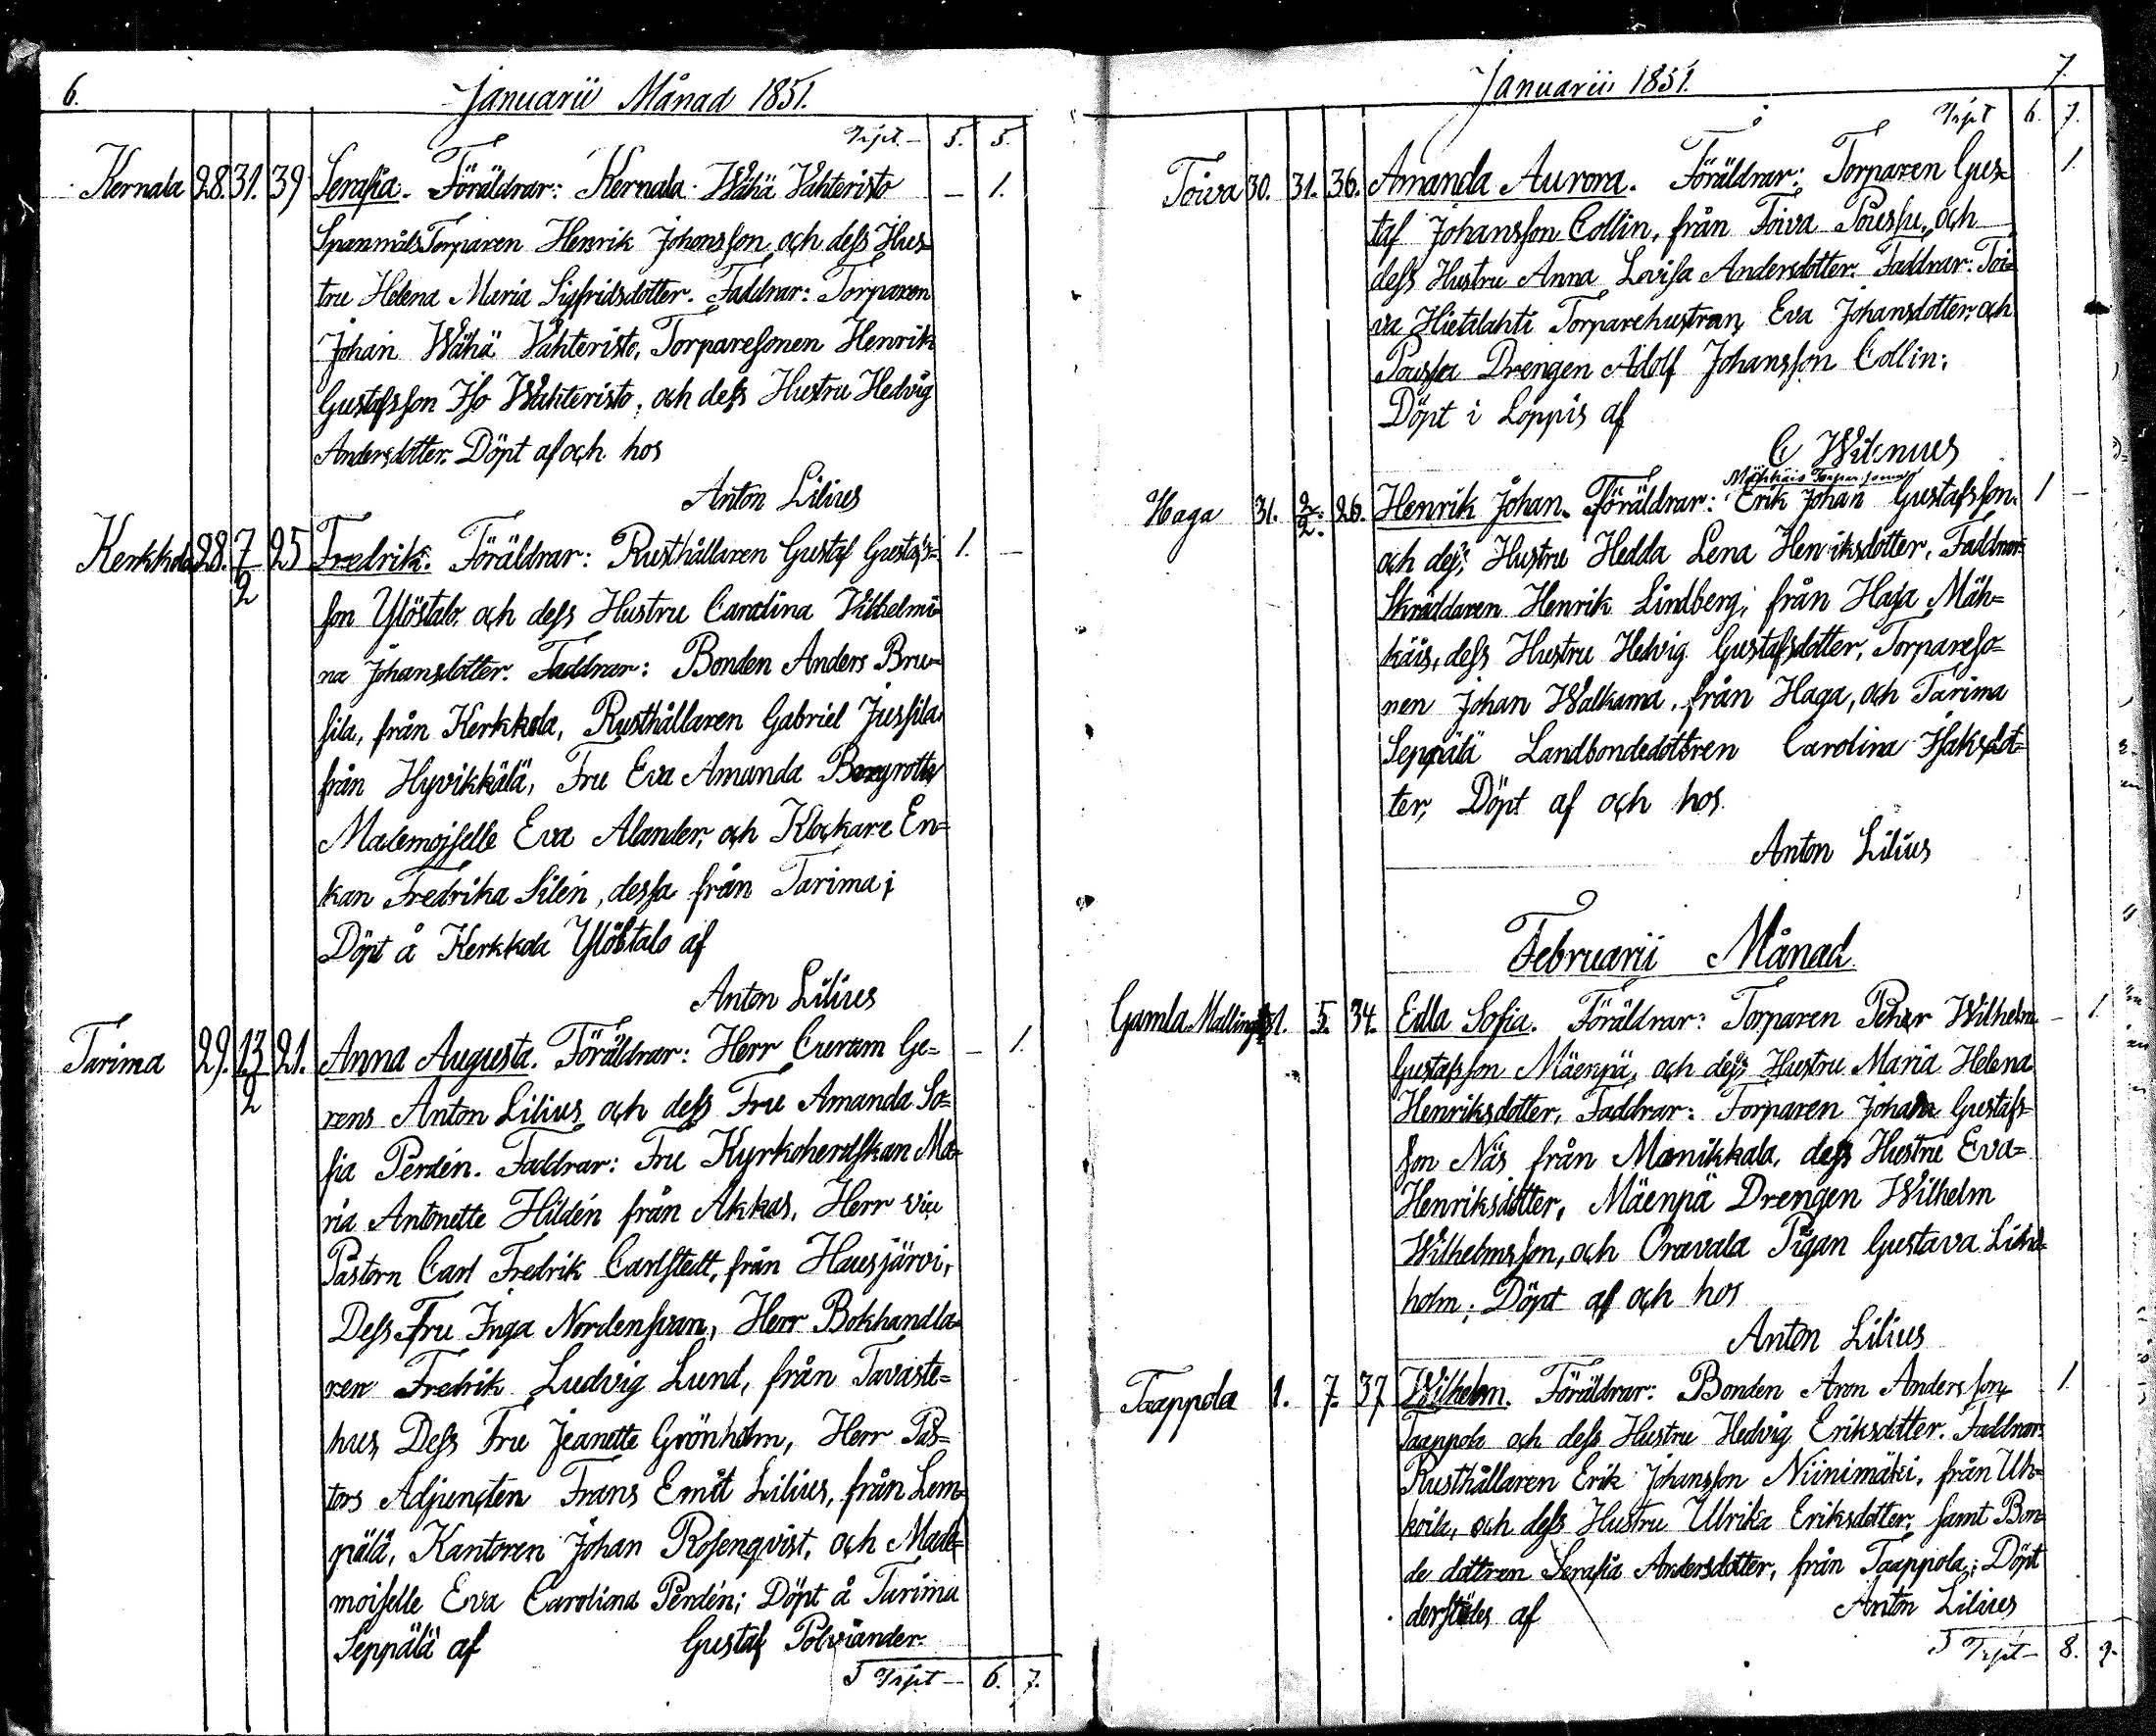 6.
Januarii Månad 1851.
Trspt. - 5. 5.
Kernala 28. 31. 39 Serafia. Föräldrar: Kernala Wähä Vahteristo - 1.
Spanmåls Torparen Henrik Johansson och dess Hus=
tru Helena Maria Sigfridsdotter. Faddrar: Torparen
Johan Wähä Vahteristo, Torparesonen Henrik
Gustafsson Iso Wahteristo, och dess Hustru Hedvig
Andersdotter. Döpt af och hos
Anton Lilius
Kerkkola 28. 7/2 25 Fredrik. Föräldrar: Rusthållaren Gustaf Gustafs= 1. -
son Ylöstalo och dess Hustru Carolina Vilhelmi=
na Johansdotter. Faddrar: Bonden Anders Bru=
sila, från Kerkkola, Rusthållaren Gabriel Jussila
från Hyvikkälä, Fru Eva Amanda Bergroth,
Mademoiselle Eva Alander, och Klockare En=
kan Fredrika Silén, dessa från Tarima;
Döpt å Kerkkola Ylöstalo af
Anton Lilius
Tarima 29. 13/2 21. Anna Augusta. Föräldrar: Herr Curam Ge= - 1.
rens Anton Lilius och dess Fru Amanda So=
fia Perdén. Faddrar: Fru Kyrkoherdskan Ma=
ria Antonette Hildén från Akkas, Herr vice
Pastorn Carl Fredrik Carlstedt, från Hausjärvi,
Dess Fru Inga Nordensvan, Herr Bokhandla=
ren Fredrik Ludvig Lund, från Tavaste=
hus, Dess Fru Jeanette Grönholm, Herr Pas=
tors Adjuncten Frans Emil Lilius, från Lem=
pälä, Kantoren Johan Rosenqvist, och Made=
moiselle Eva Carolina Perdén; Döpt å Tarima
Seppälä af Gustaf Polviander.
Trspt - 6. 7.
7.
Januarii 1851.
Trspt 6. 7.
Toiva 30. 31. 36. Amanda Aurora. Föräldrar: Torparen Gus= 1.
taf Johansson Collin, från Toiva Poussu, och
dess Hustru Anna Lovisa Andersdotter. Faddrar: Toi=
va Hietalahti Torparehustrun Eva Johansdotter, och
Poussu Drengen Adolf Johansson Collin;
Döpt i Loppis af
C Wilenius
Mähkäis Torparesonen
Haga 31. 2/2. 26. Henrik Johan. Föräldrar: Erik Johan Gustafsson 1 -
och dess Hustru Hedda Lena Henriksdotter, Faddrar:
Skräddaren Henrik Lindberg, från Haga Mäh=
käis, dess Hustru Hedvig Gustafsdotter, Torpareso=
nen Johan Walkama, från Haga, och Tarima
Seppälä Landbondedottren Carolina Isaksdot=
ter, Döpt af och hos
Anton Lilius
Februarii Månad
Gamla Mallinge 1. 5. 34. Edla Sofia. Föräldrar: Torparen Peher Wilhelm - 1.
Gustafsson Mäenpä, och dess Hustru Maria Helena
Henriksdotter, Faddrar: Torparen Johan Gustafs=
son Näs från Monikkala, dess Hustru Eva=
Henriksdotter, Mäenpä Drengen Wilhelm
Wilhelmsson, och Oravala Pigan Gustava Lind=
holm; Döpt af och hos
Anton Lilius
Taappola 1. 7. 37 Wilhelm. Föräldrar: Bonden Aron Andersson 1.
Taappola och dess Hustru Hedvig Eriksdotter. Faddrar:
Rusthållaren Erik Johansson Niinimäki, från Uh=
koila, och dess Hustru Ulrika Eriksdotter; samt Bon=
de dottren Serafia Andersdotter, från Taappola; Döpt
derstädes af Anton Lilius
Trspt - 8. 9.